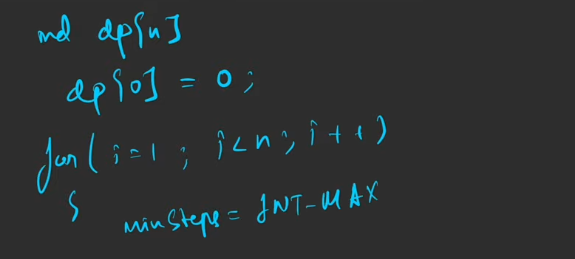 int dp[n]
dp[0] = 0;
for( i=1 ; i<n; i++)
{ minSteps = INT-MAX